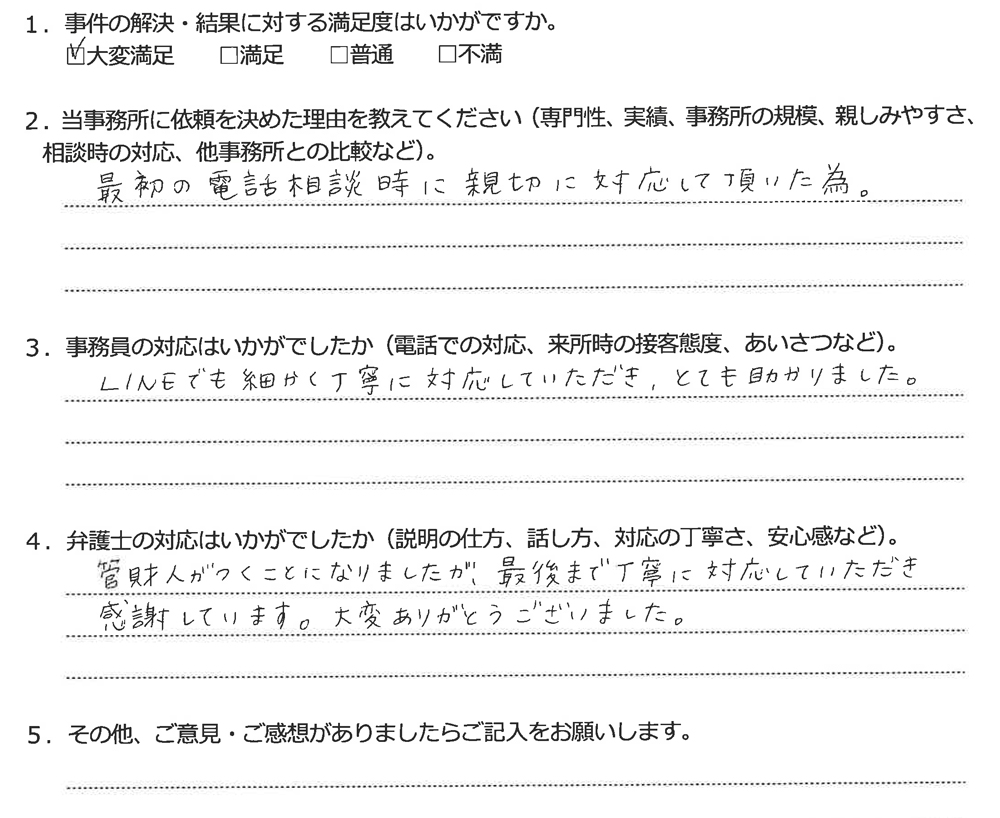 1．事件の解決・結果に対する満足度はいかがですか。
☑大変満足　□満足　□普通　□不満
2．当事務所に依頼を決めた理由を教えてください（専門性、実績、事務所の規模、親しみやすさ、
相談時の対応、他事務所との比較など）。
最初の電話相談時に親切に対応して頂いた為。
3．事務員の対応はいかがでしたか（電話での対応、来所時の接客態度、あいさつなど）。
LINEでも細かく丁寧に対応していただき、とても助かりました。
4．弁護士の対応はいかがでしたか（説明の仕方、話し方、対応の丁寧さ、安心感など）。
管財人がつくことになりましたが、最後まで丁寧に対応していただき
感謝しています。大変ありがとうございました。
5．その他、ご意見・ご感想がありましたらご記入をお願いします。